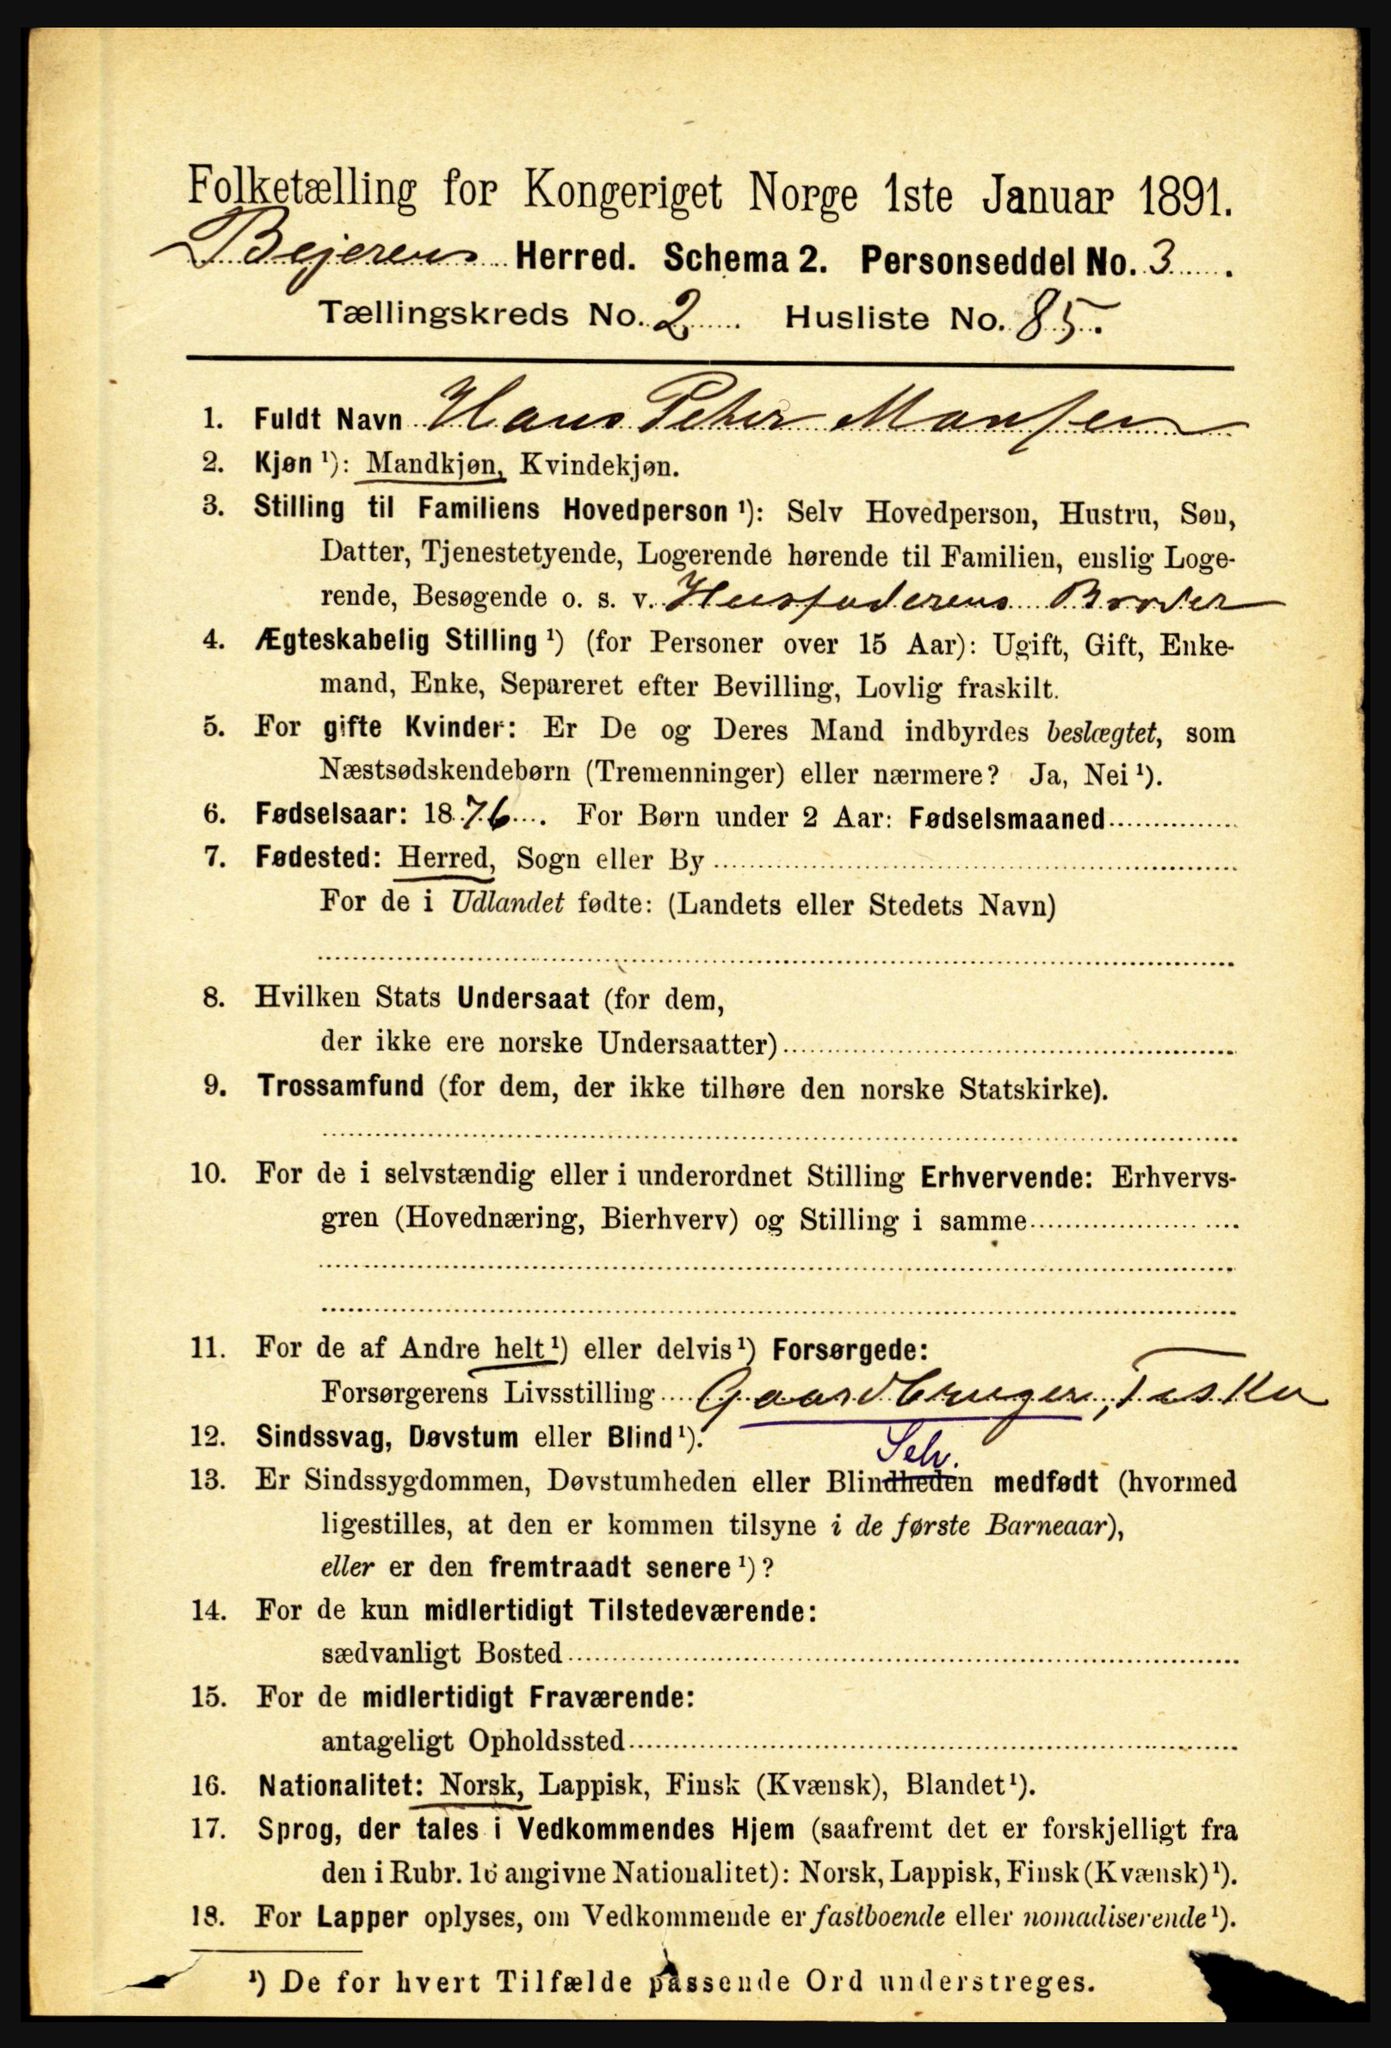 Folketælling for Kongeriget Norge 1ste Januar 1891.
Bejerens Herred. Schema 2. Personseddel No. 3.
Tællingskreds No. 2. Husliste No. 85.
1. Fuldt Navn Hans Peter Monsen
2. Kjøn ¹): Mandkjøn, Kvindekjøn.
3. Stilling til Familiens Hovedperson ¹): Selv Hovedperson, Hustru, Søn,
Datter, Tjenestetyende, Logerende hørende til Familien, enslig Loge-
rende, Besøgende o. s. v. Husfaderens Broder
4. Ægteskabelig Stilling ¹) (for Personer over 15 Aar): Ugift, Gift, Enke-
mand, Enke, Separeret efter Bevilling, Lovlig fraskilt.
5. For gifte Kvinder: Er De og Deres Mand indbyrdes beslægtet, som
Næstsødskendebørn (Tremenninger) eller nærmere? Ja, Nei ¹).
6. Fødselsaar: 1876. For Børn under 2 Aar: Fødselsmaaned
7. Fødested: Herred, Sogn eller By
For de i Udlandet fødte: (Landets eller Stedets Navn)
8. Hvilken Stats Undersaat (for dem,
der ikke ere norske Undersaatter)
9. Trossamfund (for dem, der ikke tilhøre den norske Statskirke).
10. For de i selvstændig eller i underordnet Stilling Erhvervende: Erhvervs-
gren (Hovednæring, Bierhverv) og Stilling i samme
11. For de af Andre helt ¹) eller delvis ¹) Forsørgede:
Forsørgerens Livsstilling Gaardbruger, Fisker
12. Sindssvag, Døvstum eller Blind ¹). Selv.
13. Er Sindssygdommen, Døvstumheden eller Blindheden medfødt (hvormed
ligestilles, at den er kommen tilsyne i de første Barneaar),
eller er den fremtraadt senere ¹)?
14. For de kun midlertidigt Tilstedeværende:
sædvanligt Bosted
15. For de midlertidigt Fraværende:
antageligt Opholdssted
16. Nationalitet: Norsk, Lappisk, Finsk (Kvænsk), Blandet ¹).
17. Sprog, der tales i Vedkommendes Hjem (saafremt det er forskjelligt fra
den i Rubr. 16 angivne Nationalitet): Norsk, Lappisk, Finsk (Kvænsk) ¹).
18. For Lapper oplyses, om Vedkommende er fastboende eller nomadiserende ¹).
¹) De for hvert Tilfælde passende Ord understreges.